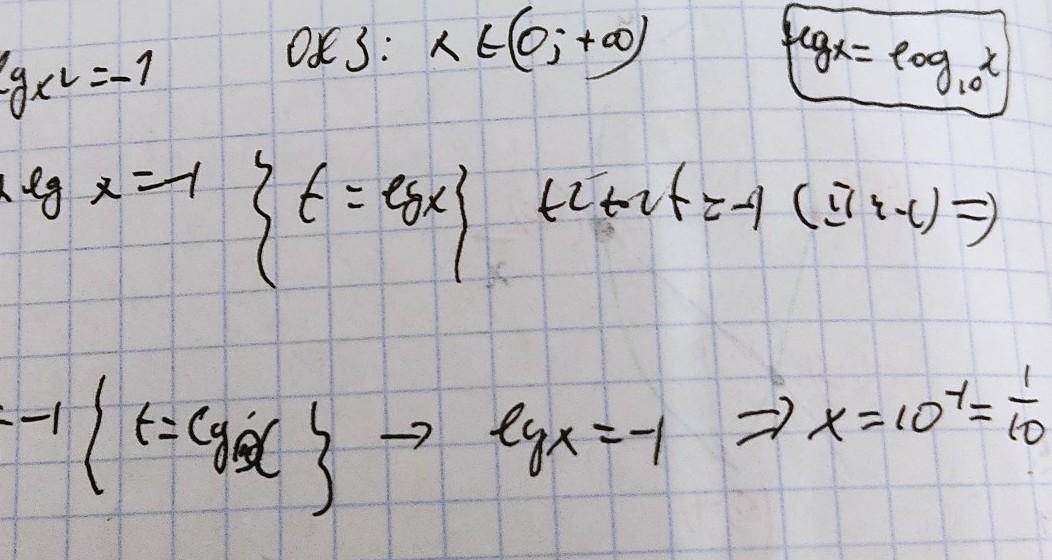 lgx² = -1 ОДЗ: x ∈ (0; +∞) lgx = log₁₀x
lg x = -1 { t = lgx } t² + 2t = -1 =>
= -1 { t = lgx } → lgx = -1 => x = 10⁻¹ = 1/10